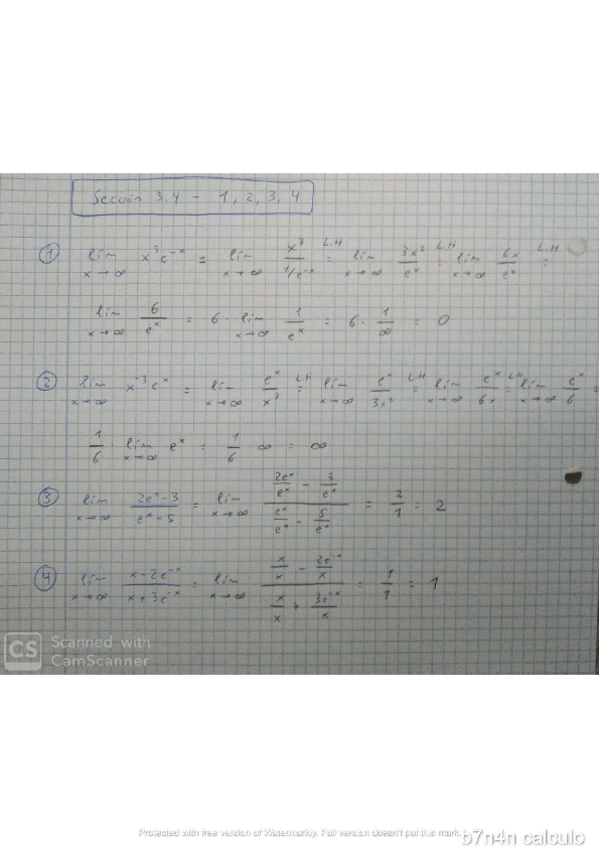 Sección 3.4 - 1, 2, 3, 4
① lim x→∞ x³e⁻ˣ = lim x→∞ x³/(1/e⁻ˣ) L.H = lim x→∞ 3x²/eˣ L.H = lim x→∞ 6x/eˣ L.H =
lim x→∞ 6/eˣ = 6 · lim x→∞ 1/eˣ = 6 · 1/∞ = 0
② lim x→∞ x⁻³eˣ = lim x→∞ eˣ/x³ L.H = lim x→∞ eˣ/3x² L.H = lim x→∞ eˣ/6x L.H = lim x→∞ eˣ/6 =
1/6 · lim x→∞ eˣ = 1/6 · ∞ = ∞
③ lim x→∞ (2eˣ-3)/(eˣ-5) = lim x→∞ (2eˣ/eˣ - 3/eˣ)/(eˣ/eˣ - 5/eˣ) = 2/1 = 2
④ lim x→∞ (x-2e⁻ˣ)/(x+3e⁻ˣ) = lim x→∞ (x/x - 2e⁻ˣ/x)/(x/x + 3e⁻ˣ/x) = 1/1 = 1
CS Scanned with
CamScanner
Protected with free version of Watermarkly. Full version doesn't put this mark.
b7n4n calculo